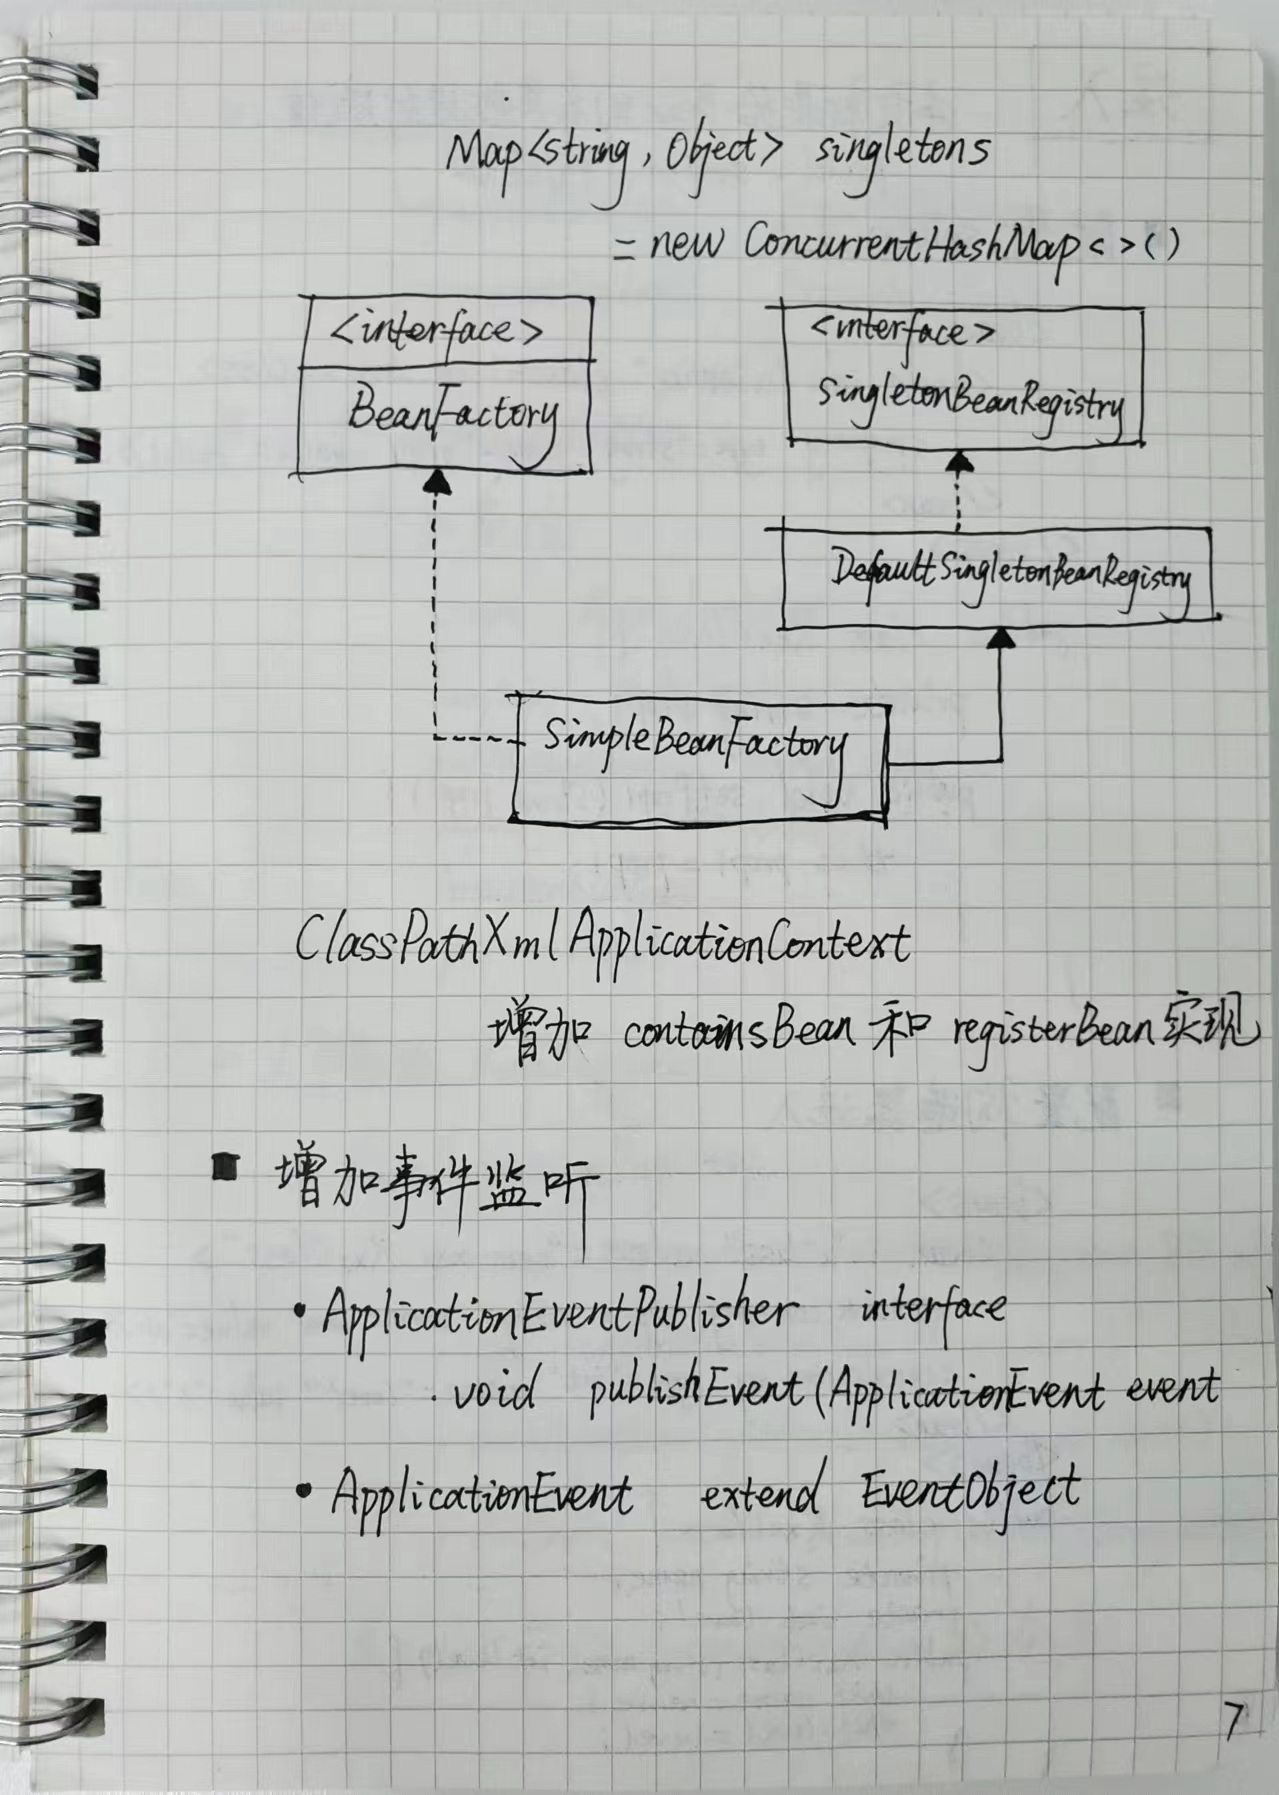 Map<string, Object> singletons
= new ConcurrentHashMap<>()
<interface>
BeanFactory
<interface>
SingletonBeanRegistry
DefaultSingletonBeanRegistry
SimpleBeanFactory
ClassPathXmlApplicationContext
增加 containsBean 和 registerBean实现
■ 增加事件监听
• ApplicationEventPublisher interface
· void publishEvent(ApplicationEvent event
• ApplicationEvent extend EventObject
7